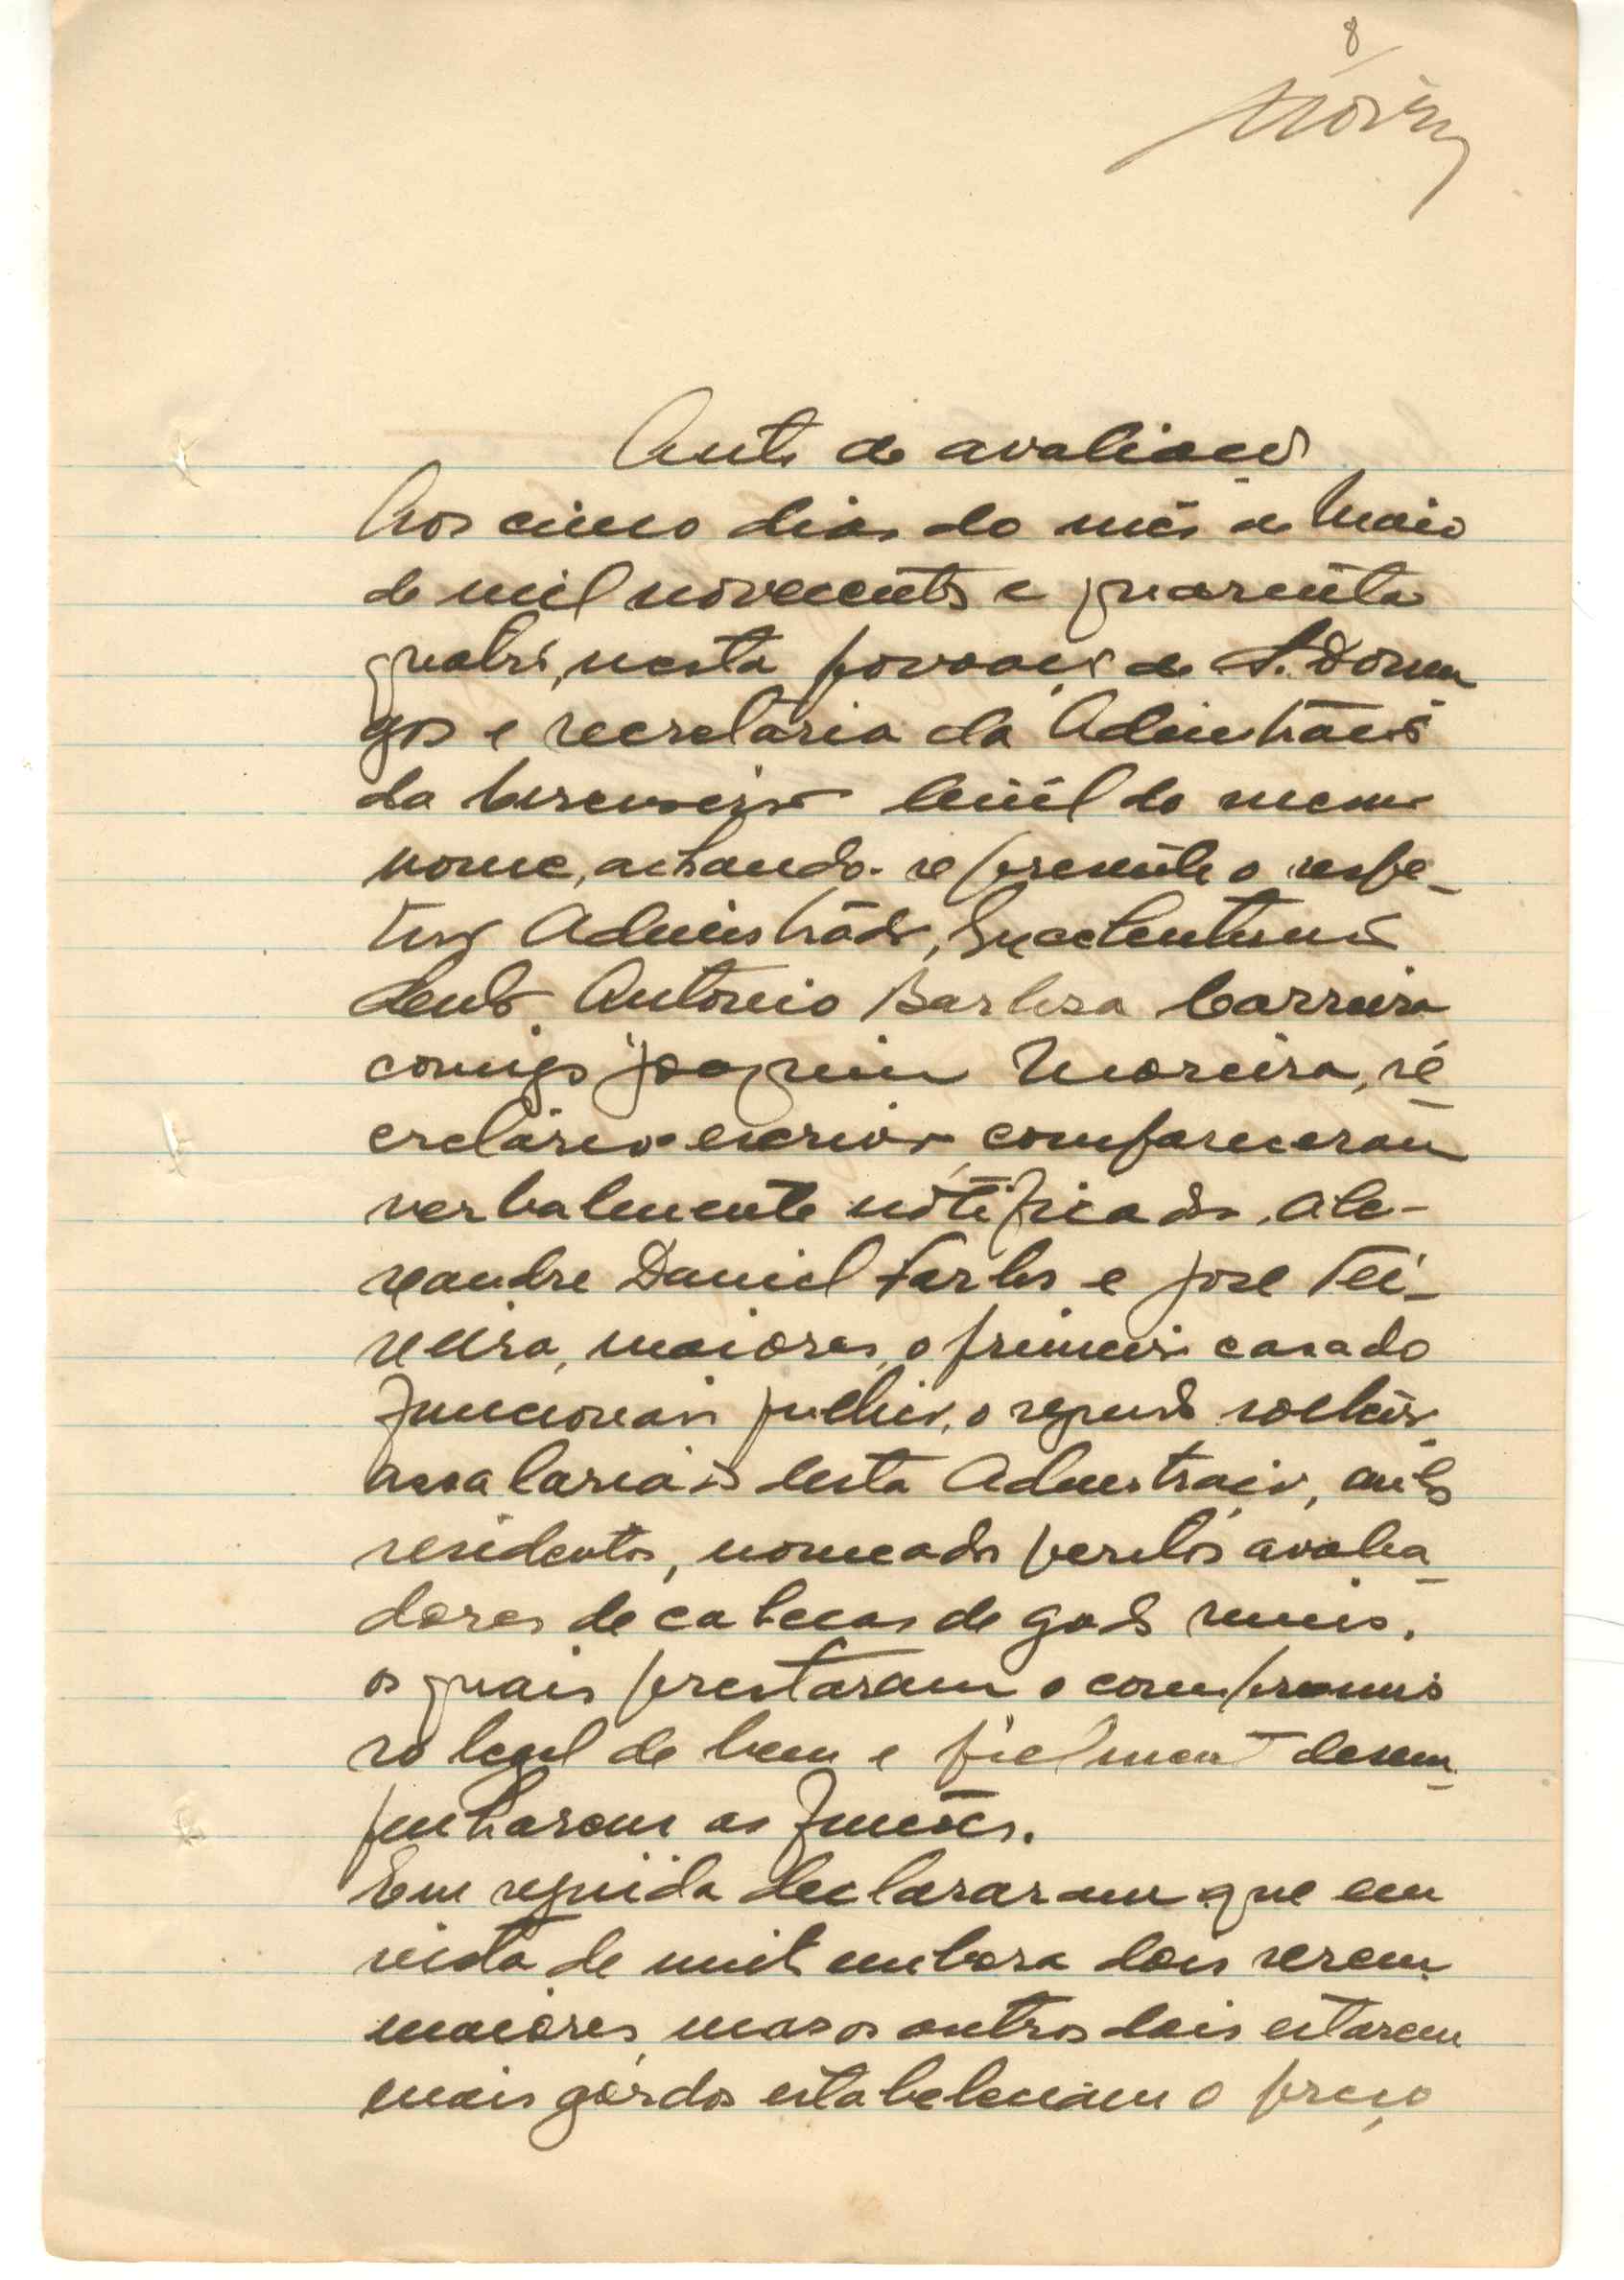 8
Auto de avaliação
Aos cinco dias do mês de Maio
de mil novecentos e quarenta
quatro, nesta povoação de S. Domin
gos e secretaria da Administração
da Circunscrição Civil do mesmo
nome, achando-se presente o respe-
tivo Administrador, Excelentissimo
Senhor Antonio Barbosa Carreira
comigo Joaquim Moreira, se
cretário escrivão compareceram
verbalmente notificados, Ale-
xandre Daniel Forbs e José Tei-
xeira, maiores, o primeiro casado
funcionario publico, o segundo solteiro
assalariado desta Administração, ambos
residentes, nomeados peritos avalia
dores de cabeças de gado
os quais prestaram o compromis
so legal de bem e fielmente desem
penharem as funções.
Em seguida declararam que em
vista de muito embora dois serem
maiores, mas os outros dois estarem
mais gordos estabeleciam o preço